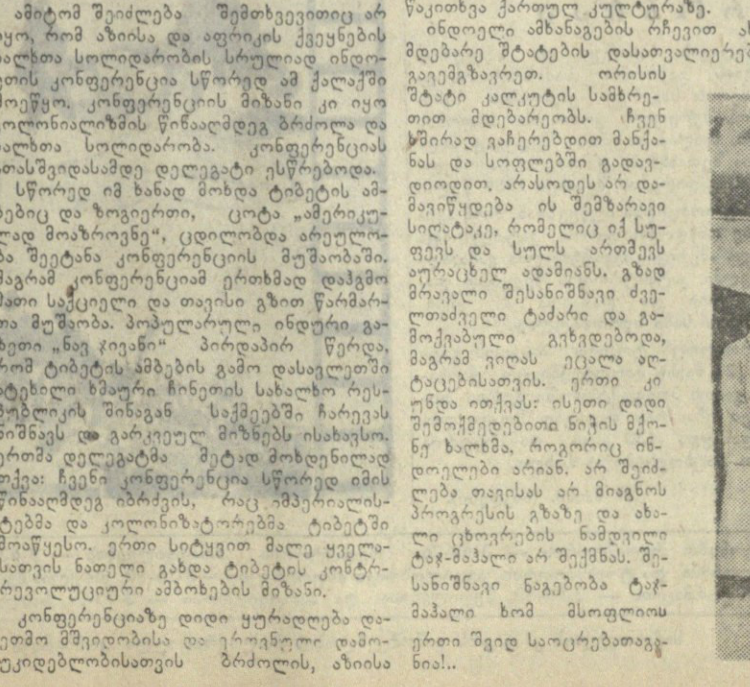 ამიტომ შეიძლება შემთხვევითიც არ
იყო, რომ აზიისა და აფრიკის ქვეყნების
ხალხთა სოლიდარობის სრულიად ინდო-
ეთის კონფერენცია სწორედ ამ ქალაქში
მოეწყო. კონფერენციის მიზანი კი იყო
კოლონიალიზმის წინააღმდეგ ბრძოლა და
ხალხთა სოლიდარობა. კონფერენციას
ათასშვიდასამდე დელეგატი ესწრებოდა.
სწორედ იმ ხანად მოხდა ტიბეტის ამ-
ბებიც და ზოგიერთი, ცოტა „ამერიკუ-
ლად მოაზროვნე“, ცდილობდა არეულო-
ბა შეეტანა კონფერენციის მუშაობაში.
მაგრამ კონფერენციამ ერთხმად დაჰგმო
მათი საქციელი და თავისი გზით წარმარ-
თა მუშაობა. პოპულარული ინდური გა-
ზეთი „ნავ ჯივანი“ პირდაპირ წერდა,
რომ ტიბეტის ამბების გამო დასავლეთში
ატეხილი ხმაური ჩინეთის სახალხო რეს-
პუბლიკის შინაგან საქმეებში ჩარევას
ნიშნავს და გარკვეულ მიზნებს ისახავსო.
ერთმა დელეგატმა მეტად მოხდენილად
თქვა: ჩვენი კონფერენცია სწორედ იმის
წინააღმდეგ იბრძვის, რაც იმპერიალის-
ტებმა და კოლონიზატორებმა ტიბეტში
მოაწყესო. ერთი სიტყვით მალე ყველა-
სათვის ნათელი გახდა ტიბეტის კონტრ-
რევოლუციური ამბოხების მიზანი.
კონფერენციაზე დიდი ყურადღება და-
ეთმო მშვიდობისა და ეროვნული დამო-
უკიდებლობისათვის ბრძოლის, აზიისა
წაკითხვა ქართულ კულტურაზე.
ინდოელი ამხანაგების რჩევით
მდებარე შტატების დასათვალიერებ
გავემგზავრეთ. ორისის
შტატი კალკუტის სამხრე-
თით მდებარეობს. ჩვენ
ხშირად ვაჩერებდით მანქა-
ნას და სოფლებში გადავ-
დიოდით. არასოდეს არ და-
მავიწყდება ის შემზარავი
სიღატაკე, რომელიც იქ სუ-
ფევს და სულს ართმევს
აურაცხელ ადამიანს. გზად
მრავალი შესანიშნავი ძვე-
ლთაძველი ტაძარი და გა-
მოქვაბული გვხვდებოდა,
მაგრამ ვიღას ეცალა აღ-
ტაცებისათვის. ერთი კი
უნდა ითქვას: ისეთი დიდი
შემოქმედებითი ნიჭის მქო-
ნე ხალხმა, როგორიც ინ-
დოელები არიან, არ შეიძ-
ლება თავისას არ მიაგნოს
პროგრესის გზაზე და ახა-
ლი ცხოვრების ნამდვილი
ტაჯ-მაჰალი არ შექმნას. შე-
სანიშნავი ნაგებობა ტაჯ-
მაჰალი ხომ მსოფლიოს
ერთი შვიდ საოცრებათაგა-
ნია!..